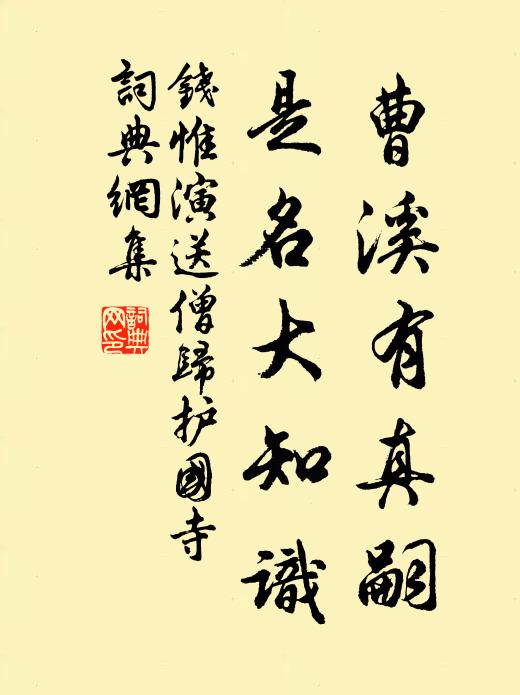 曹溪有真嗣
是名大知識
錢惟演送僧歸护國寺
詞典網集
詞典网印